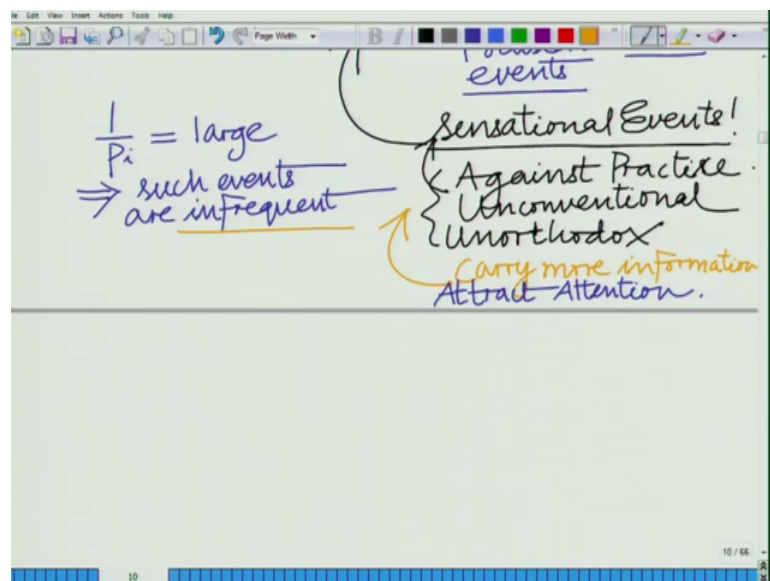 Edit View Insert Actions Tools Help
Page Width
B I
events
1/Pi = large
⇒ such events
are infrequent
Sensational Events!
Against Practice.
Unconventional
Unorthodox
Carry more information
Attract Attention.
10 / 66
10